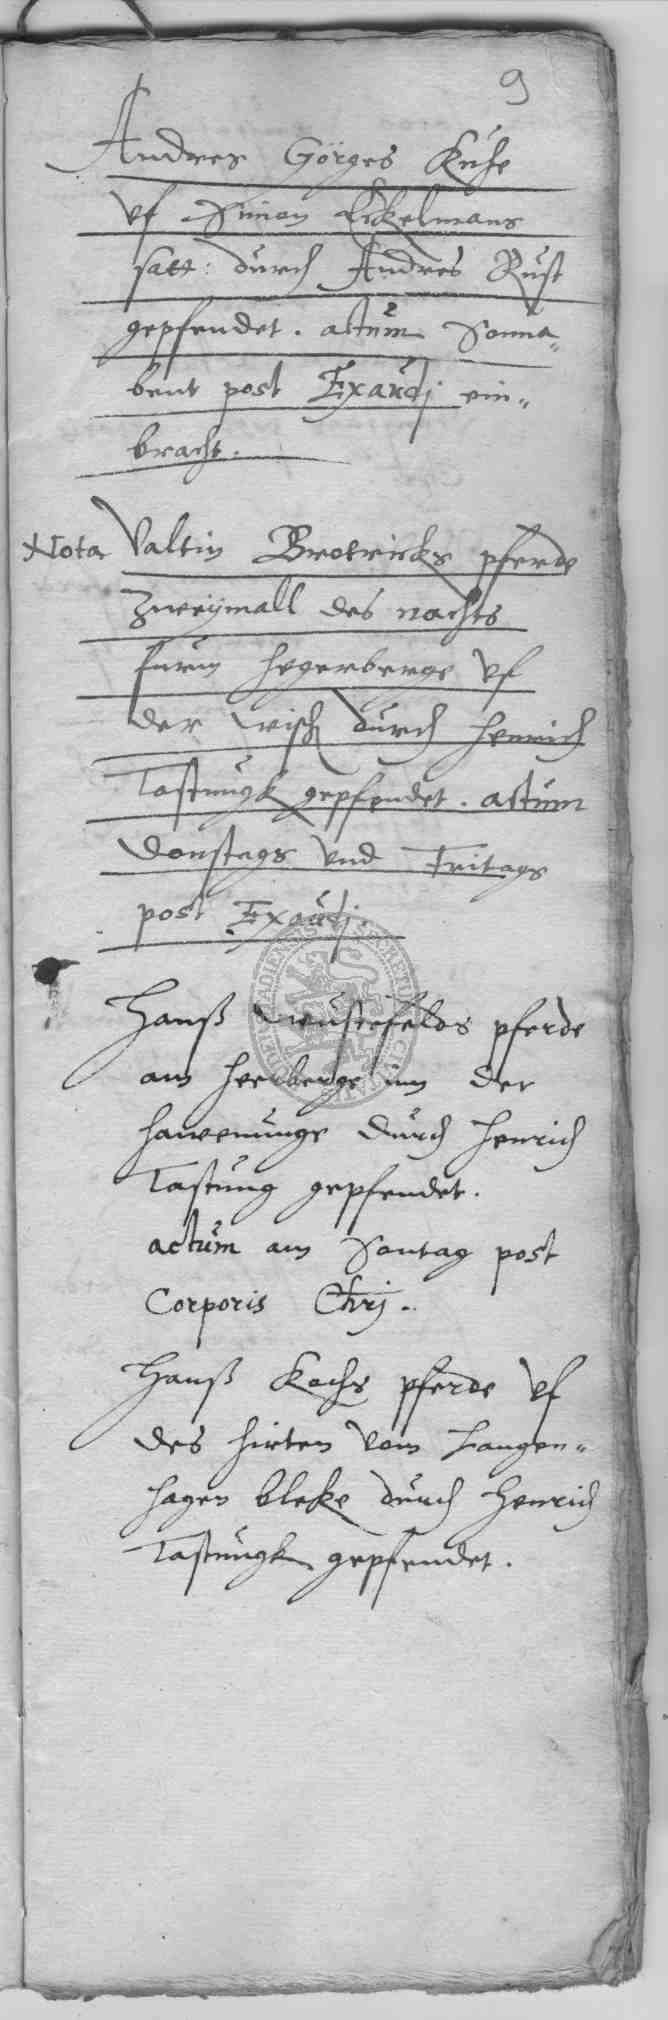 9
Andres Görges Kuhe
vf Simon Eickelmans
satt: durch Andres Rust
gepfendet. actum Sonna„
bent post Exaudj ein„
bracht.
Nota Valtin Brotricks pferde
Zweymall des nachts
furm hegerberge vf
der wisch durch Henrich
Tastungk gepfendet. actum
Donstags vnd Fritags
post Exaudj.
Hanß Wustefelds pferde
am heerberge inn der
hawenunge durch Henrich
Tastung gepfendet.
actum am Sontag post
Corporis Chrj.
Hanß Kochs pferde vf
des hirten vom Langen„
hagen bleke durch Henrich
Tastungk gepfendet.